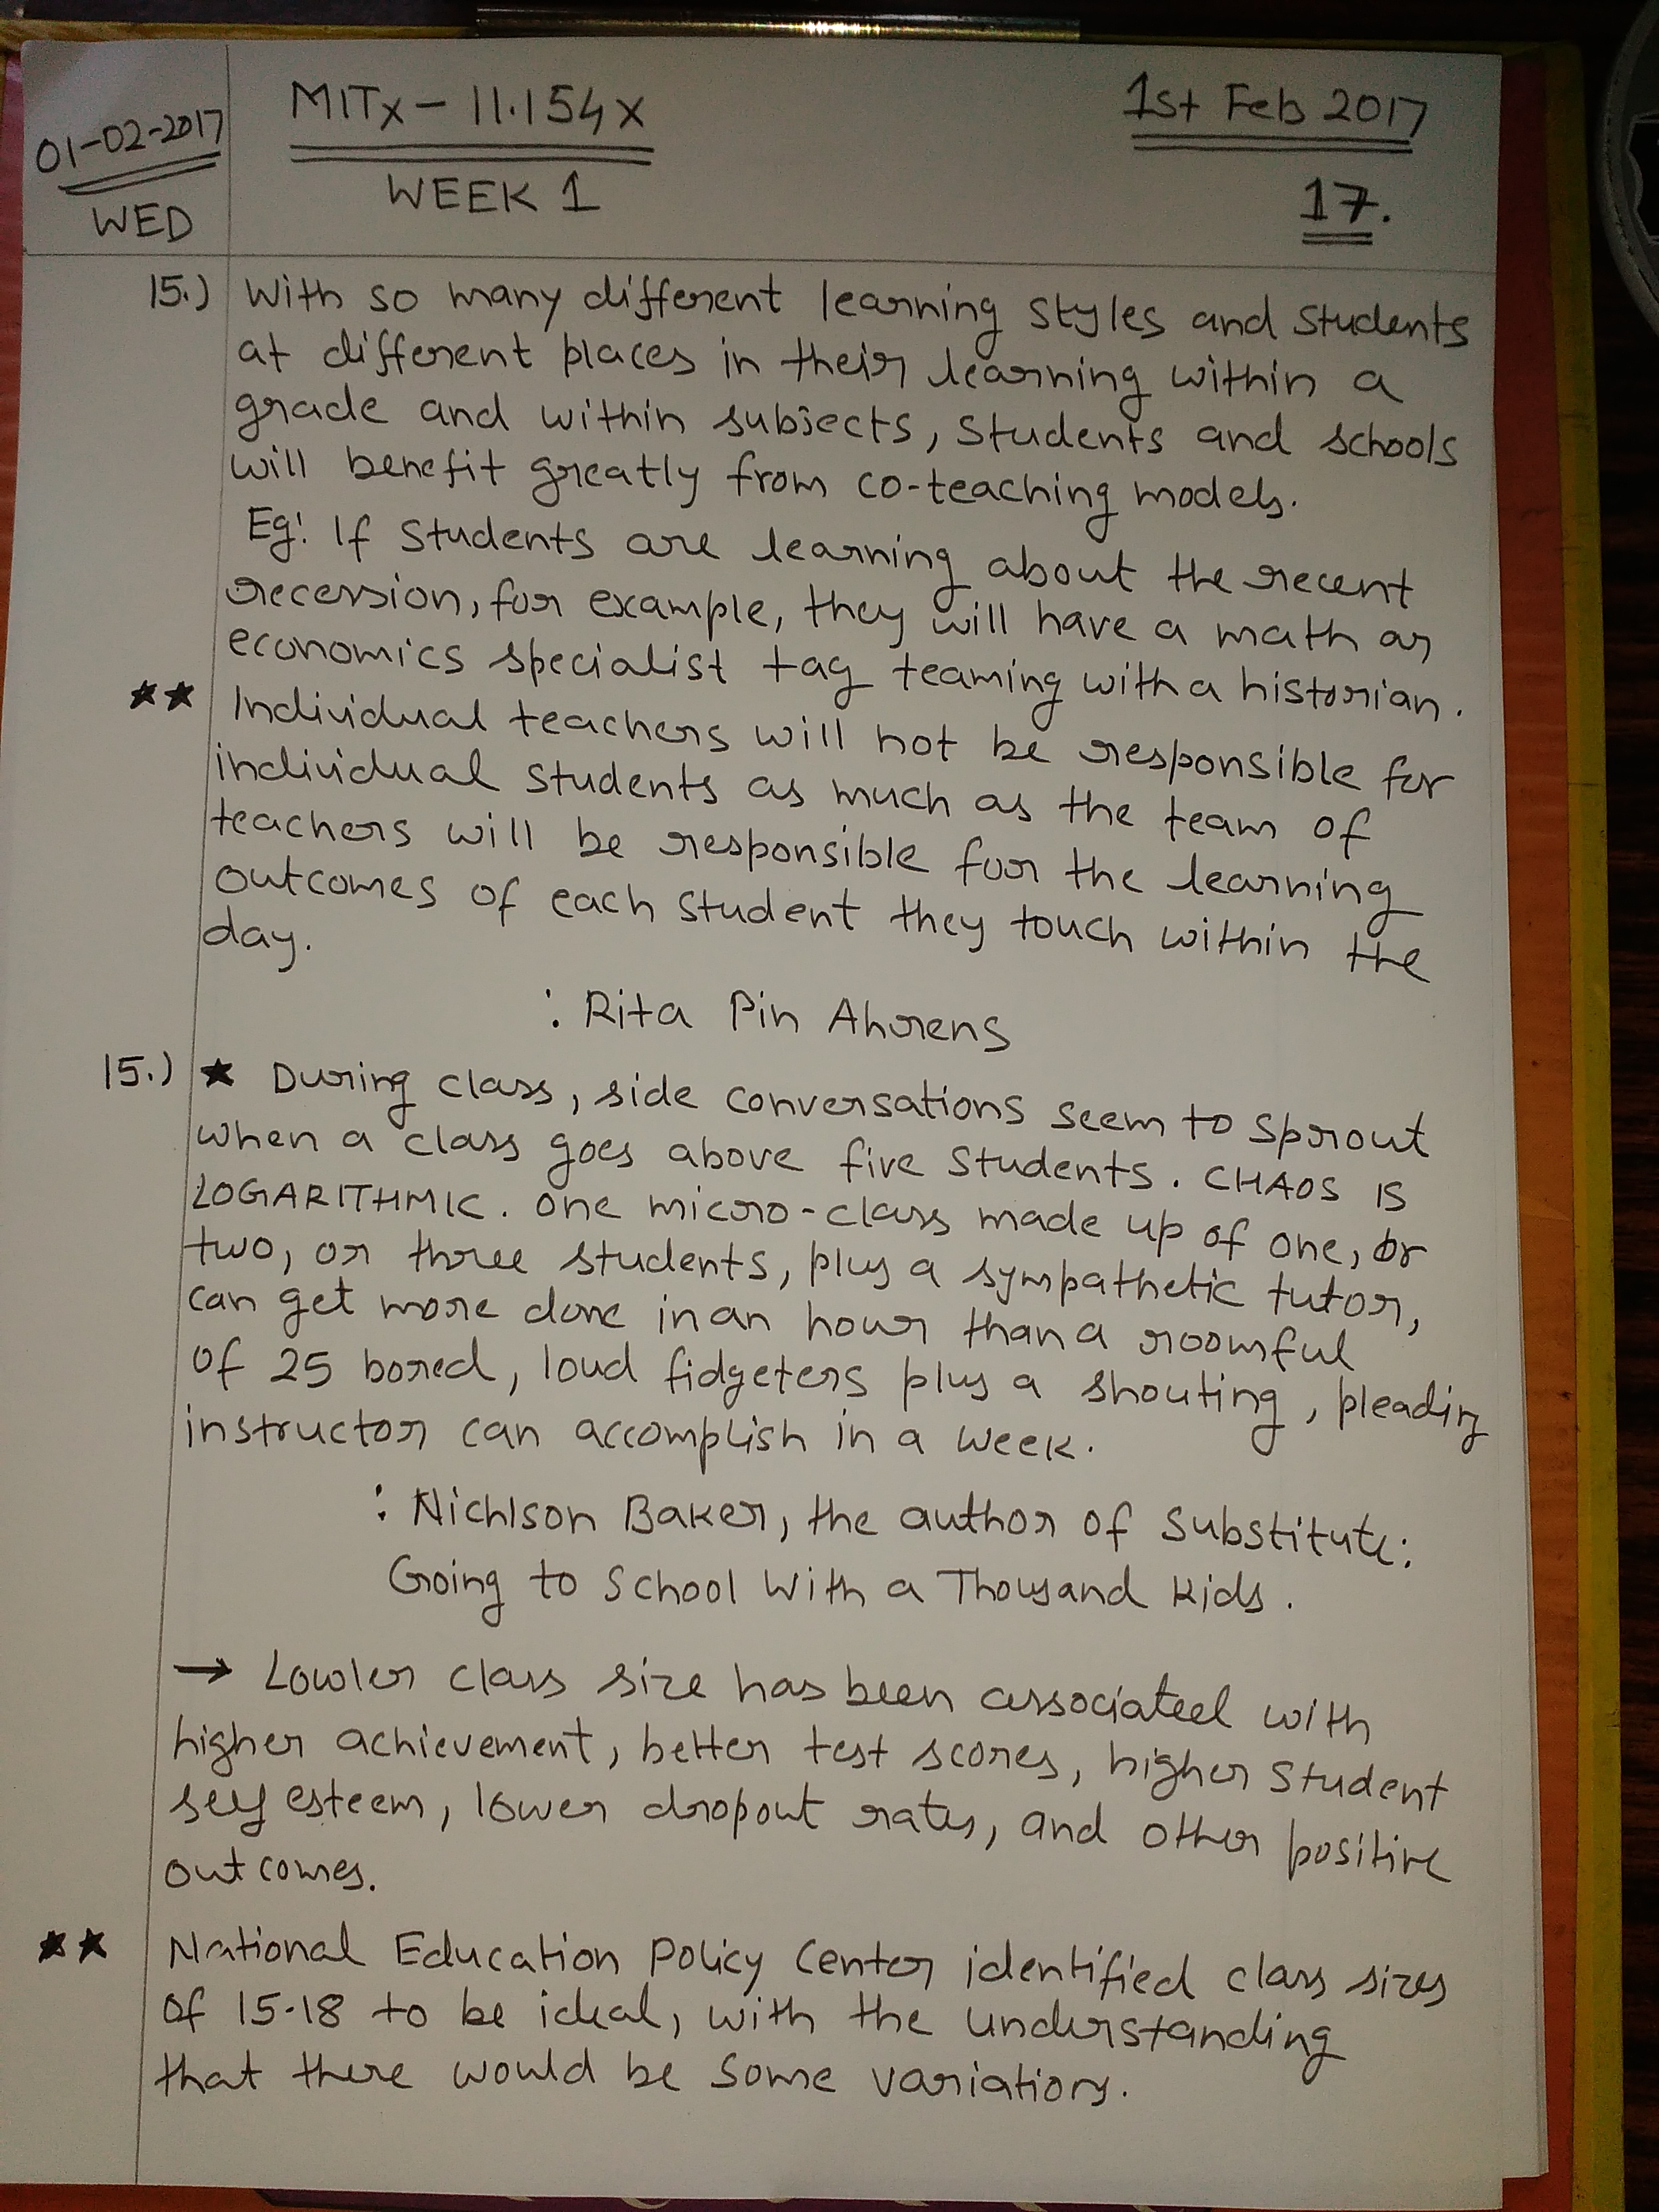 01-02-2017
WED
MITx - 11.154x
WEEK 1
1st Feb 2017
17.
15.) With so many different learning styles and students
at different places in their learning within a
grade and within subjects, students and schools
will benefit greatly from co-teaching models.
Eg: If students are learning about the recent
recession, for example, they will have a math or
economics specialist tag teaming with a historian.
★★ Individual teachers will not be responsible for
individual students as much as the team of
teachers will be responsible for the learning
outcomes of each student they touch within the
day.
: Rita Pin Ahrens
15.) ★ During class, side conversations seem to sprout
when a class goes above five students. CHAOS IS
LOGARITHMIC. One micro-class made up of one, or
two, or three students, plus a sympathetic tutor,
can get more done in an hour than a roomful
of 25 bored, loud fidgeters plus a shouting, pleading
instructor can accomplish in a week.
: Nichlson Baker, the author of Substitute:
Going to School With a Thousand Kids.
→ Lowler class size has been associated with
higher achievement, better test scores, higher student
self esteem, lower dropout rates, and other positive
outcomes.
★★ National Education Policy Center identified class sizes
of 15-18 to be ideal, with the understanding
that there would be some variations.